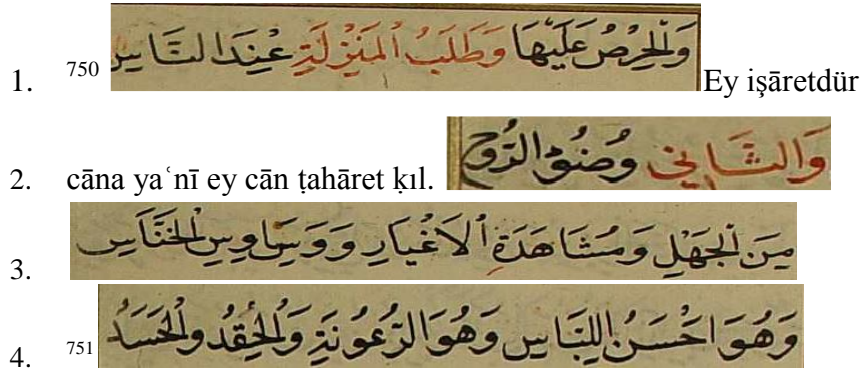 1. 750 وَالْحِرْصُ عَلَيْهَا وَطَلَبُ الْمَنْزِلَةِ عِنْدَ النَّاسِ Ey işāretdür
2. cāna yaʿnī ey cān ṭahāret ḳıl. وَالثَّانِي وُضُوءُ الرُّوحِ
3. مِنَ الْجَهْلِ وَمُشَاهَدَةِ الْاَغْيَارِ وَوَسَاوِسِ الْخَنَّاسِ
4. 751 وَهُوَ اَحْسَنُ اللِّبَاسِ وَهُوَ الرُّعُونَةِ وَالْحِقْدُ وَالْحَسَدُ